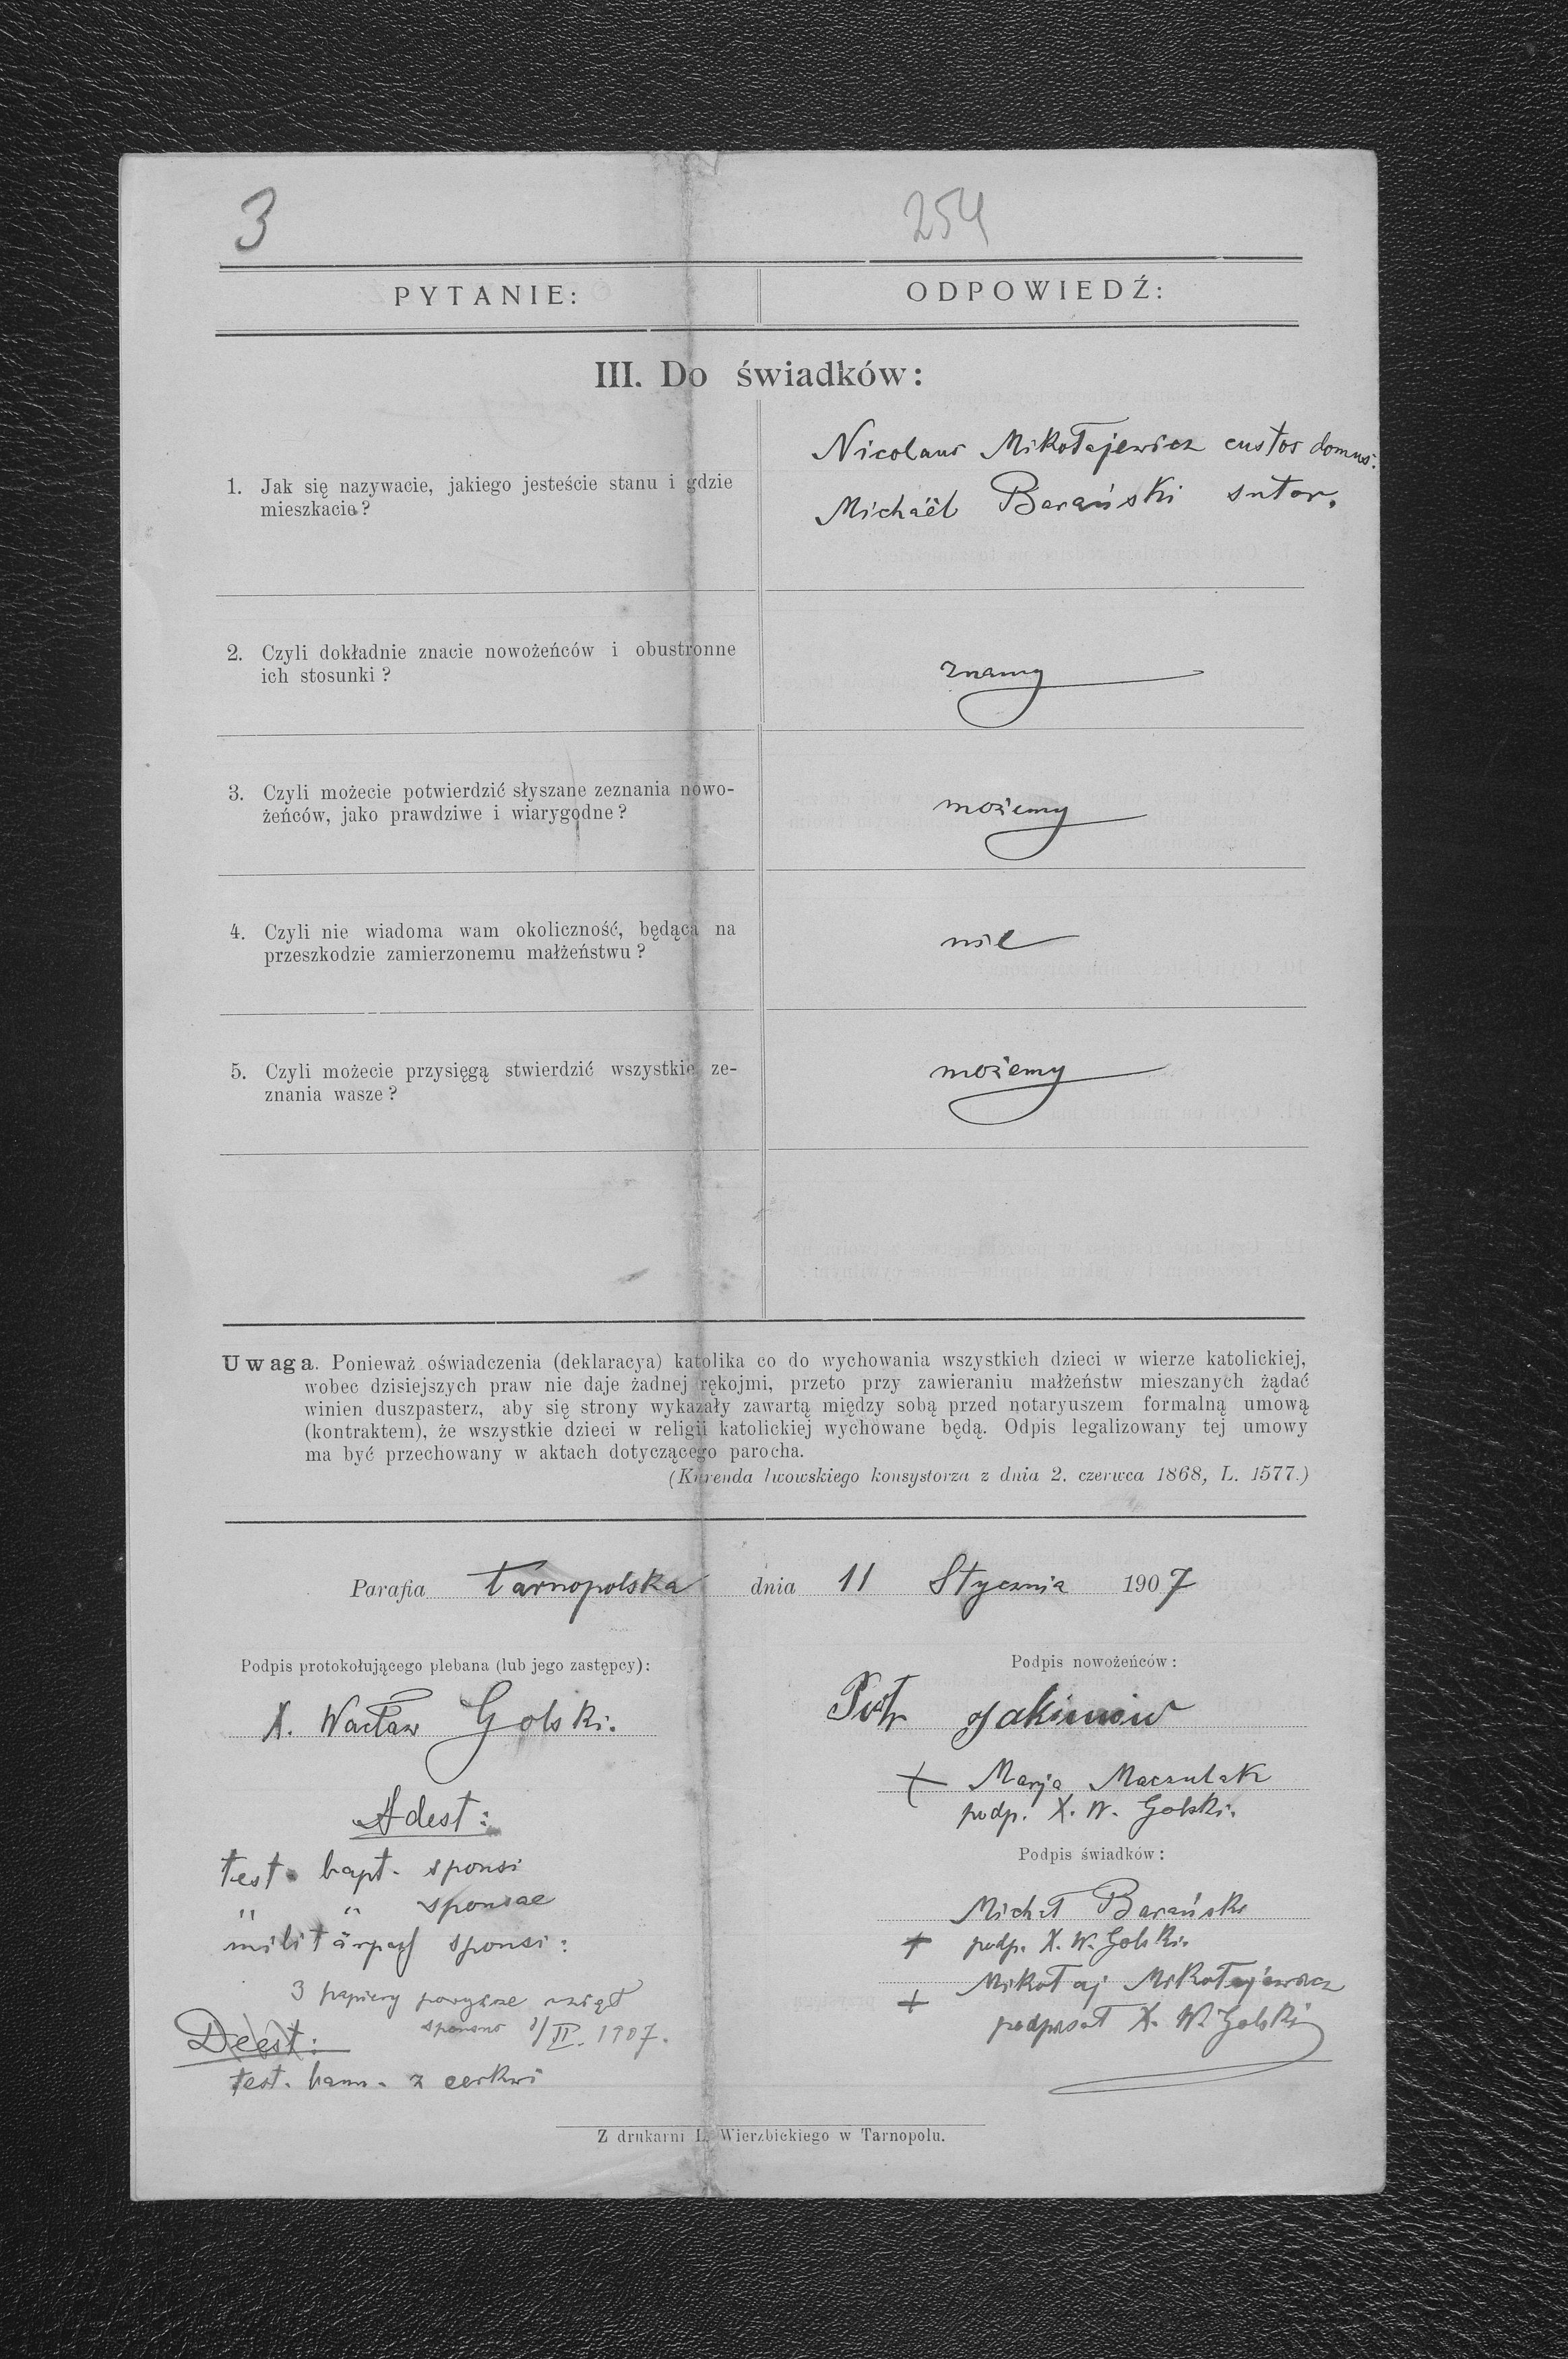 3
254
PYTANIE:
ODPOWIEDŹ:
III. Do świadków:
1. Jak się nazywacie, jakiego jesteście stanu i gdzie
mieszkacie?
Nicolaus Mikołajewicz custos domus.
Michaël Barański sutor.
2. Czyli dokładnie znacie nowożeńców i obustronne
ich stosunki?
znamy
3. Czyli możecie potwierdzić słyszane zeznania nowo-
żeńców, jako prawdziwe i wiarygodne?
możemy
4. Czyli nie wiadoma wam okoliczność, będąca na
przeszkodzie zamierzonemu małżeństwu?
nie
5. Czyli możecie przysięgą stwierdzić wszystkie ze-
znania wasze?
możemy
Uwaga. Ponieważ oświadczenia (deklaracya) katolika co do wychowania wszystkich dzieci w wierze katolickiej,
wobec dzisiejszych praw nie daje żadnej rękojmi, przeto przy zawieraniu małżeństw mieszanych żądać
winien duszpasterz, aby się strony wykazały zawartą między sobą przed notaryuszem formalną umową
(kontraktem), że wszystkie dzieci w religii katolickiej wychowane będą. Odpis legalizowany tej umowy
ma być przechowany w aktach dotyczącego parocha.
(Kurenda lwowskiego konsystorza z dnia 2. czerwca 1868, L. 1577.)
Parafia tarnopolska dnia 11 Stycznia 1907
Podpis protokołującego plebana (lub jego zastępcy):
X. Wacław Golski.
Podpis nowożeńców:
Piotr Jakimów
+ Marja Maczulak
podp. X. W. Golski.
Podpis świadków:
Michał Barański
+ podp. X. W. Golski.
Mikołaj Mikołajewicz
+ podpisał X. W. Golski
Adest:
test. bapt. sponsi
" " sponsae
sponsi:
3 papiery powyższe wziął
sponsus 1/II. 1907.
Deest:
test. bann. z cerkwi
Z drukarni L. Wierzbickiego w Tarnopolu.